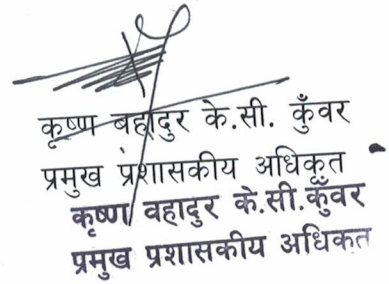 कृष्ण बहादुर के.सी. कुँवर
प्रमुख प्रशासकीय अधिकृत
कृष्ण वहादुर के.सी.कुँवर
प्रमुख प्रशासकीय अधिकत